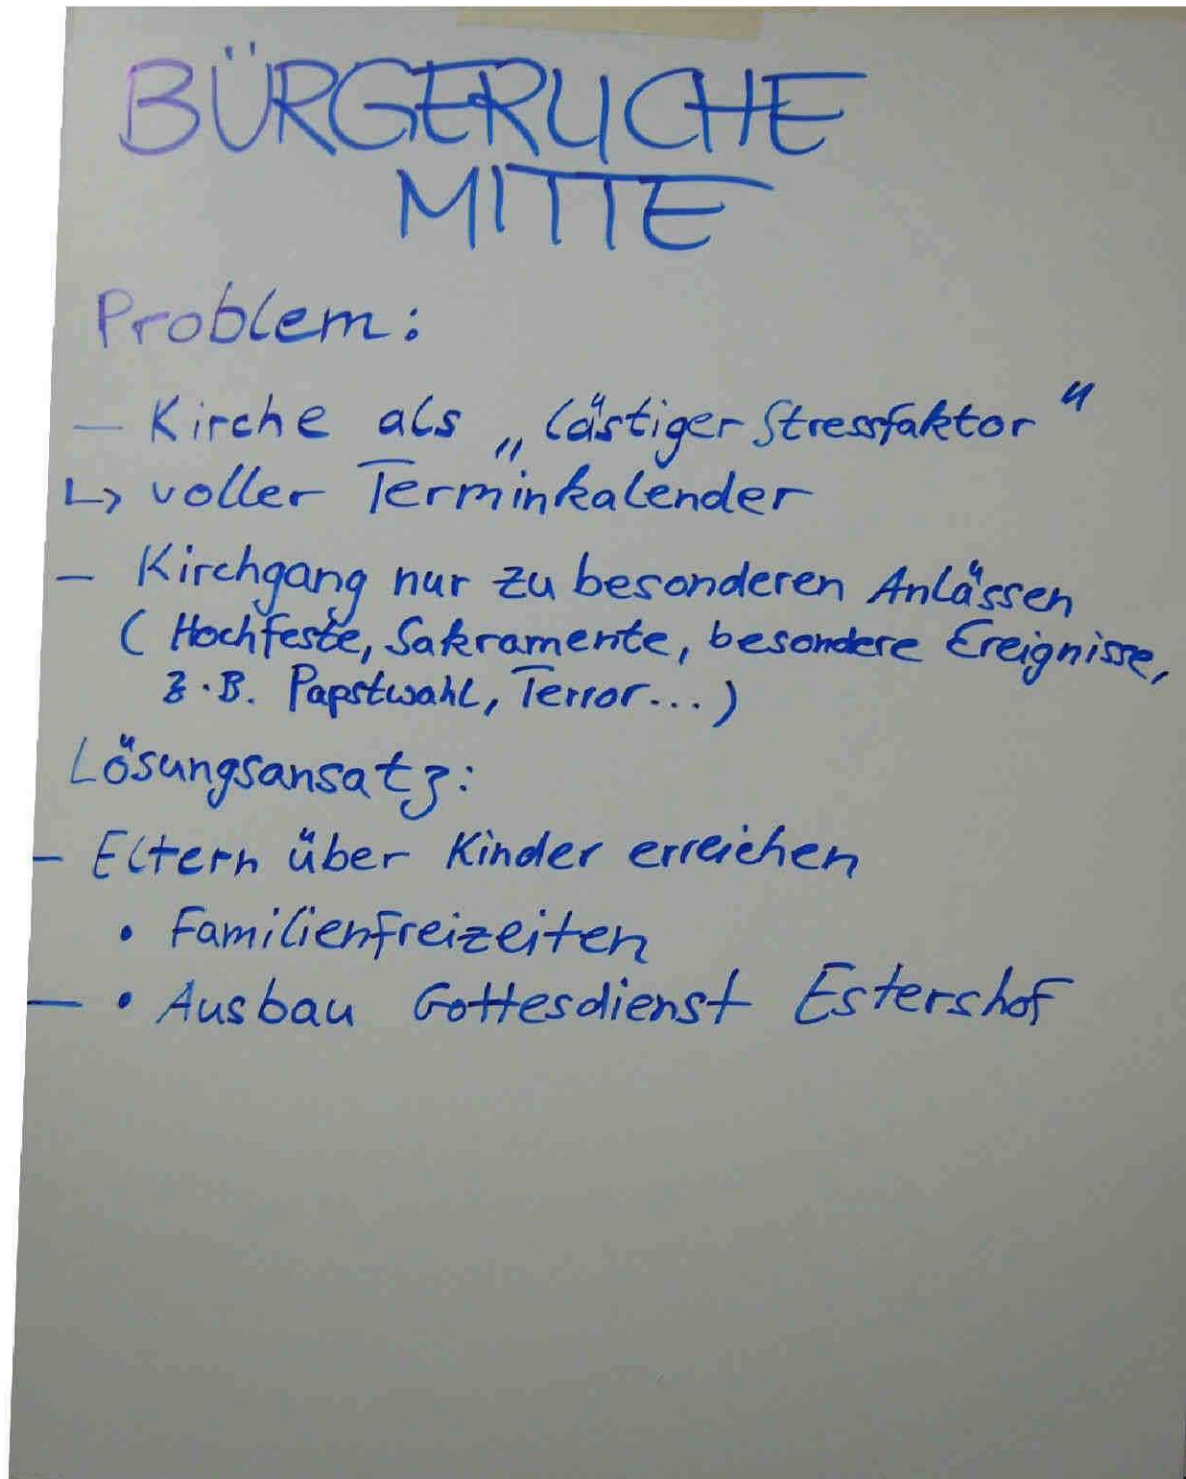 BÜRGERLICHE
MITTE
Problem:
— Kirche als „lästiger Stressfaktor"
↳ voller Terminkalender
– Kirchgang nur zu besonderen Anlässen
(Hochfeste, Sakramente, besondere Ereignisse,
z.B. Papstwahl, Terror...)
Lösungsansatz:
– Eltern über Kinder erreichen
• Familienfreizeiten
— • Ausbau Gottesdienst Estershof